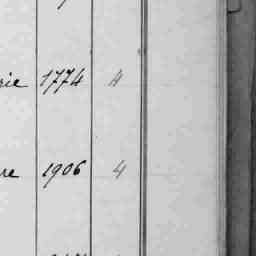 rie 1774 4
re 1906 4